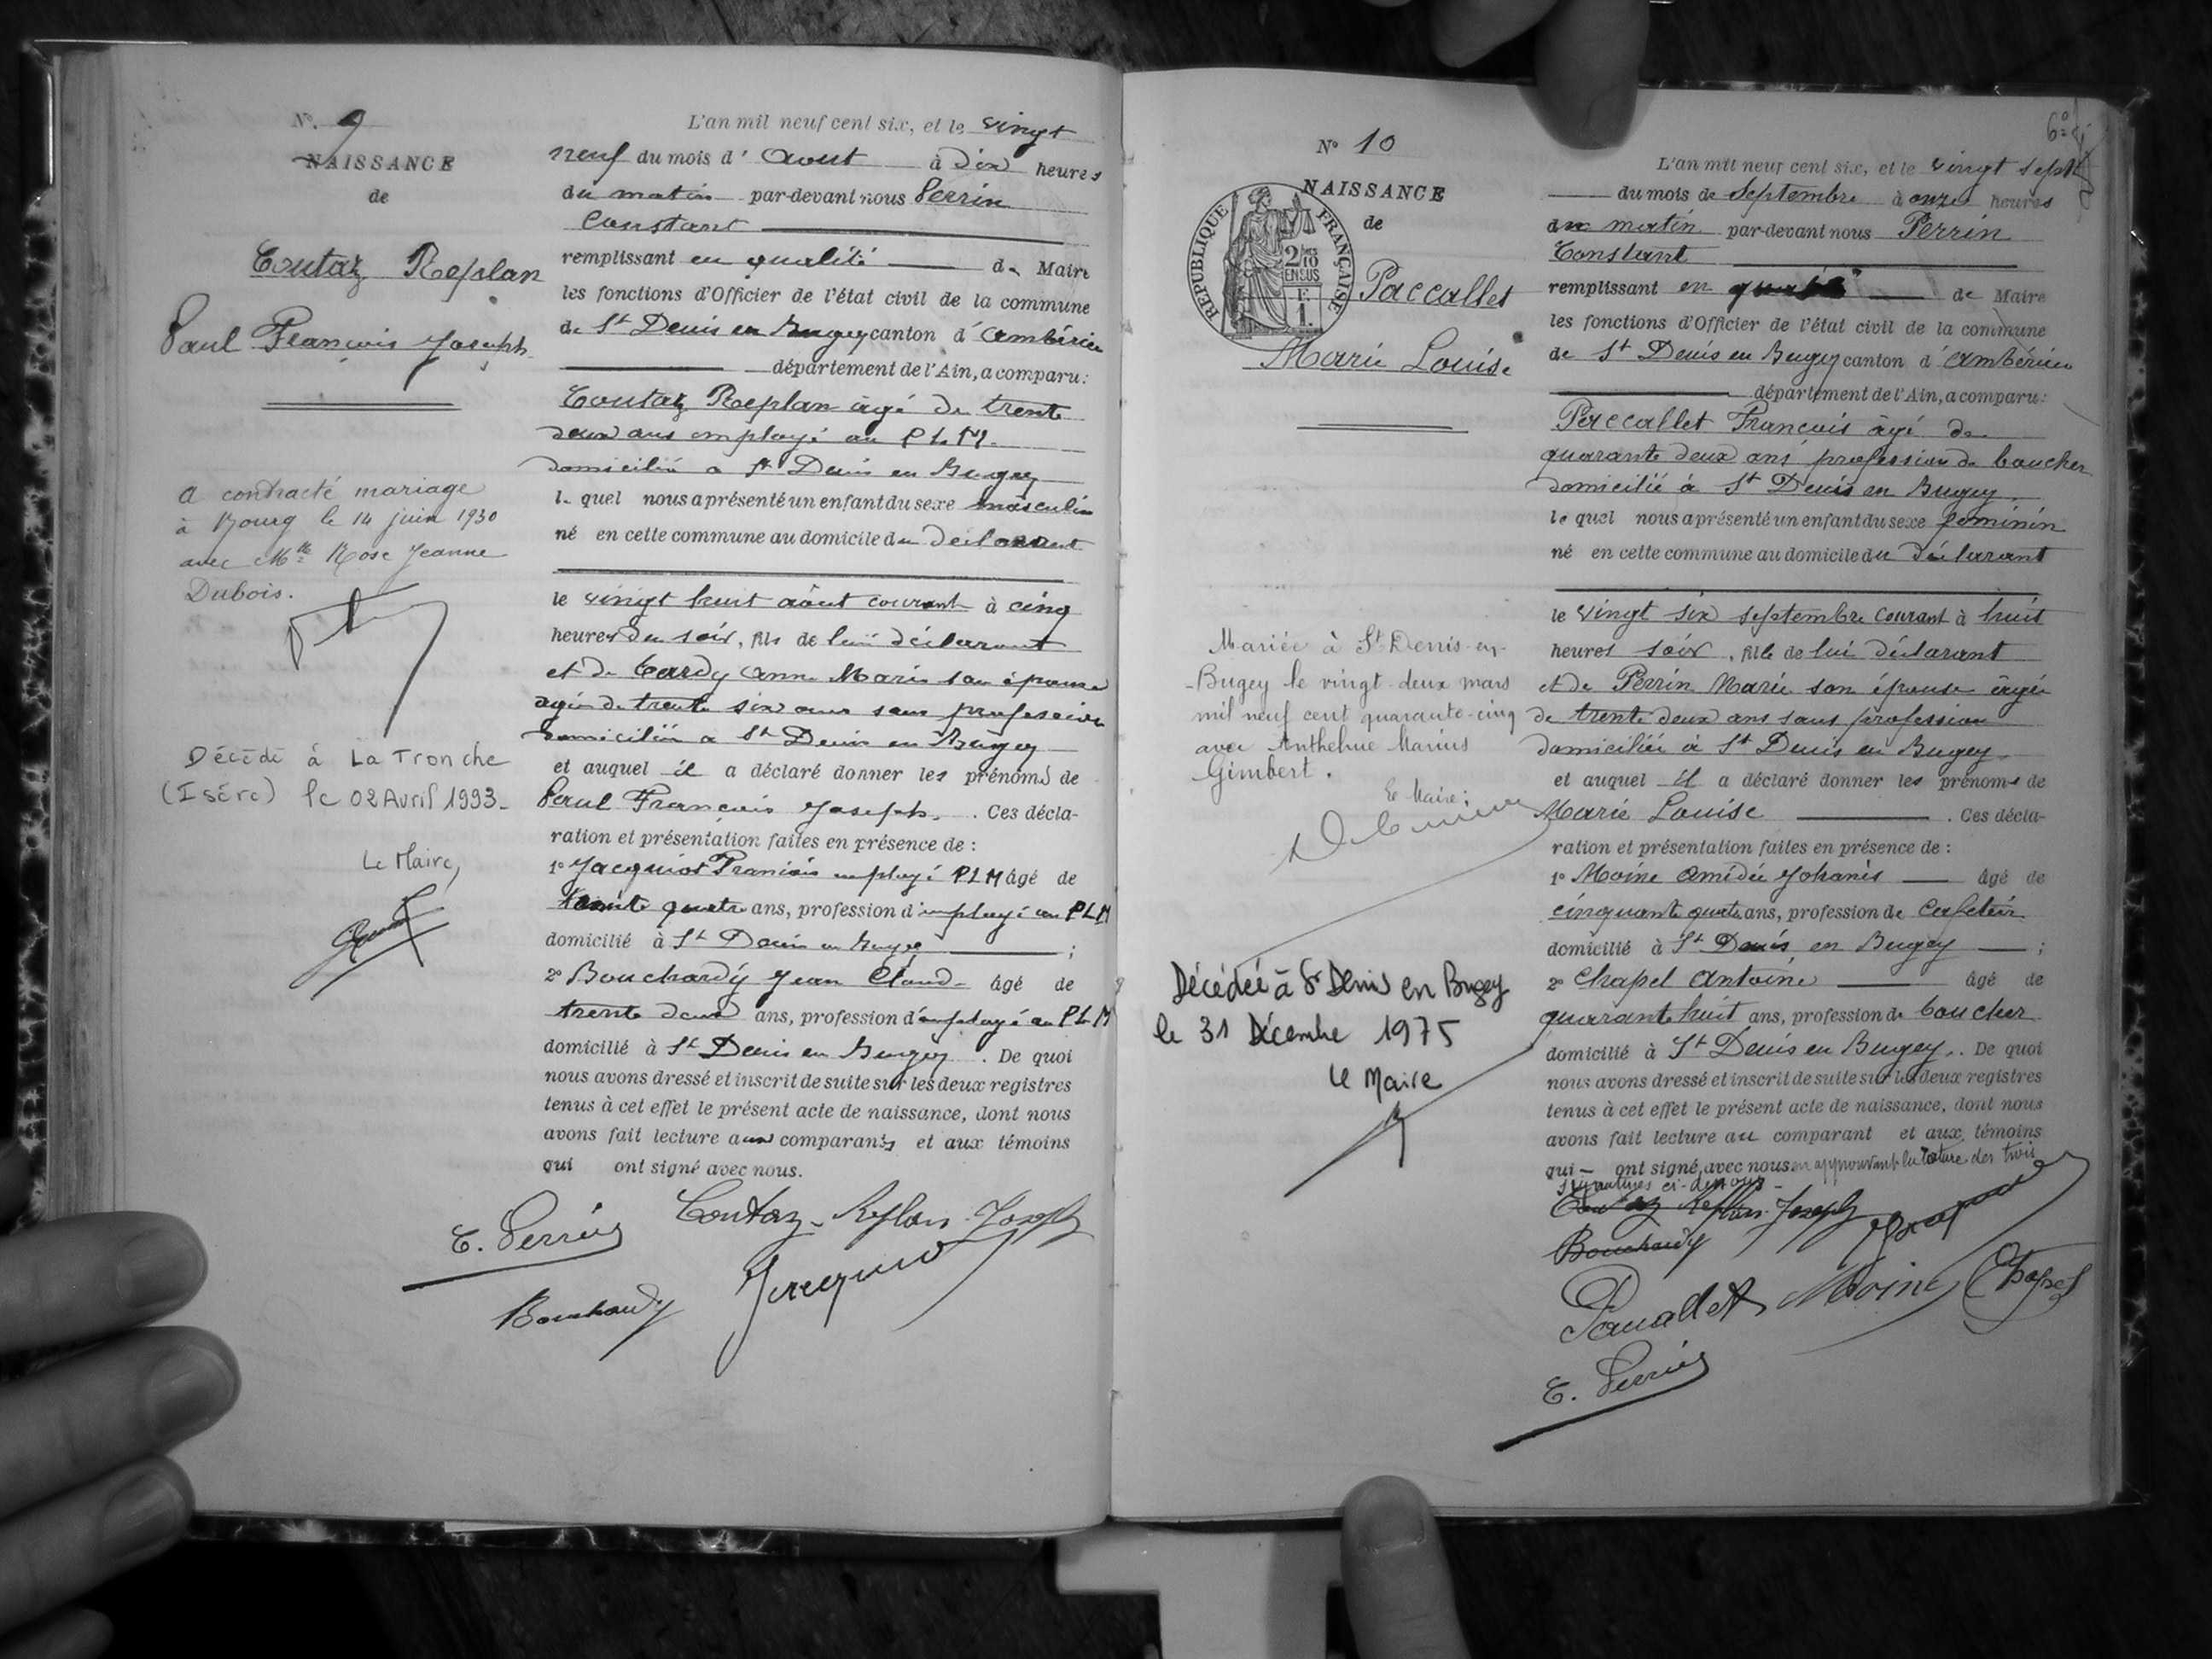 N°. 9
NAISSANCE
de
Coutaz Replan
Paul François Joseph
a contracté mariage
à Bourg le 14 juin 1930
avec Mlle Rose Jeanne
Dubois.
Décédé à La Tronche
(Isère) le 02 Avril 1993.
Le Maire,
L'an mil neuf cent six, et le vingt
neuf du mois d' aout à dix heures
du matin par-devant nous Perrin
Constant
remplissant en qualité de Maire
les fonctions d'Officier de l'état civil de la commune
de St Denis en Bugey canton d' ambérieu
département de l'Ain, a comparu:
Coutaz Replan âgé de trente
deux ans employé au P L M.
domicilié a St Denis en Bugey
le quel nous a présenté un enfant du sexe masculin
né en cette commune au domicile du declarant
le vingt huit août courant à cinq
heures du soir, fils de lui déclarant
et de Cardy Anne Marie son épouse
agée de trente six ans sans profession
domiciliée a St Denis en Bugey
et auquel il a déclaré donner les prénoms de
Paul François Joseph. . Ces décla-
ration et présentation faites en présence de :
1° Jacquiot François employé PLM âgé de
trente quatre ans, profession d'employé au PLM
domicilié à St Denis en Bugey ;
2° Bouchardy Jean Claude âgé de
trente deux ans, profession d'employé au PLM
domicilié à St Denis en Bugey . De quoi
nous avons dressé et inscrit de suite sur les deux registres
tenus à cet effet le présent acte de naissance, dont nous
avons fait lecture aux comparants et aux témoins
qui ont signé avec nous.
C. Perrin Coutaz-Replan Joseph
Bouchardy Jacquiot
N° 10
NAISSANCE
de
REPUBLIQUE FRANÇAISE
2/10
EN SUS
F.
1.
Paccallet
Marie Louise
Mariée à St Denis-en-
-Bugey le vingt-deux mars
mil neuf cent quarante-cinq
avec Anthelme Marius
Gimbert.
Le Maire:
Décédée à St Denis en Bugey
le 31 Décembre 1975
Le Maire
L'an mil neuf cent six, et le vingt sept
du mois de Septembre à onze heures
du matin par-devant nous Perrin
Constant
remplissant en qualité de Maire
les fonctions d'Officier de l'état civil de la commune
de St Denis en Bugey canton d' ambérieu
département de l'Ain, a comparu:
Paccallet François âgé de
quarante deux ans profession de boucher
domicilié à St Denis en Bugey.
le quel nous a présenté un enfant du sexe feminin
né en cette commune au domicile du déclarant
le vingt six septembre courant à huit
heures soir, fille de lui déclarant
et de Perrin Marie son épouse âgée
de trente deux ans sans profession
domiciliée à St Denis en Bugey
et auquel il a déclaré donner les prénoms de
Marie Louise . Ces décla-
ration et présentation faites en présence de :
1° Moine Amédée Johanis âgé de
cinquante quatre ans, profession de Cafetier
domicilié à St Denis en Bugey ;
2° Chapel Antoine âgé de
quarante huit ans, profession de boucher
domicilié à St Denis en Bugey. . De quoi
nous avons dressé et inscrit de suite sur les deux registres
tenus à cet effet le présent acte de naissance, dont nous
avons fait lecture au comparant et aux témoins
qui ont signé, avec nous en approuvant la rature des trois
signatures ci-dessous
Coutaz Replan Joseph Jacquiot
Bouchardy
Paccallet Moine Chapel
C. Perrin